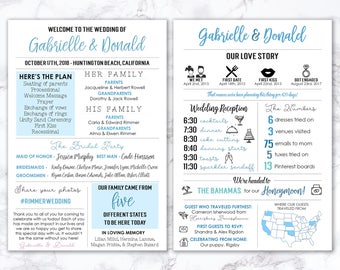 WELCOME TO THE WEDDING OF
Gabrielle & Donald
OCTOBER 17TH, 2018 - HUNTINGTON BEACH, CALIFORNIA
HERE'S THE PLAN
Seating of parents
Processional
Welcome Message
Prayer
Exchange of vows
Exchange of rings
Unity Sand Ceremony
First Kiss
Recessional
HER FAMILY
PARENTS
Jacqueline & Herbert Rowell
GRANDPARENTS
Dorothy & Jack Rowell
HIS FAMILY
PARENTS
Carla & Edward Rimmer
GRANDPARENTS
Alvina & Erwin Rimmer
The Bridal Party
MAID OF HONOR: Jessica Murphy BEST MAN: Caleb
BRIDESMAIDS:
GROOMSMEN:
Share your photos
#RIMMERWEDDING
Thank you to all of you for coming to
celebrate with us today! Each of you
has made an impact in our lives and
we are so happy you get to share
this special day with us. It wouldn't
be the same without you here!
OUR FAMILY CAME FROM
five
DIFFERENT STATES
TO BE HERE TODAY
IN LOVING MEMORY
Lilian Milan, Hermina Larrine,
Megan Rimmer, & Stephen Robert
Gabrielle & Donald
OUR LOVE STORY
WE MET
FIRST DATE
FIRST KISS
GOT ENGAGED
Wedding Reception
6:30 cocktails
7:30 dinner
8:30 cake cutting
9:30 dancing
11:30 sparkler sendoff
The Numbers
6 dresses tried on
3 venues visited
75 emails to mom
5 tuxes tried on
13 Pinterest boards
We're headed to
THE BAHAMAS for our Honeymoon!
GUEST WHO TRAVELED FURTHEST:
Cameron Isherwood
FIRST GUESTS TO RSVP:
Shandra & Alex Rigdon
CELEBRATING FROM HOME:
Our puppy, Rigsby
WHERE OUR GUESTS
TRAVELED FROM